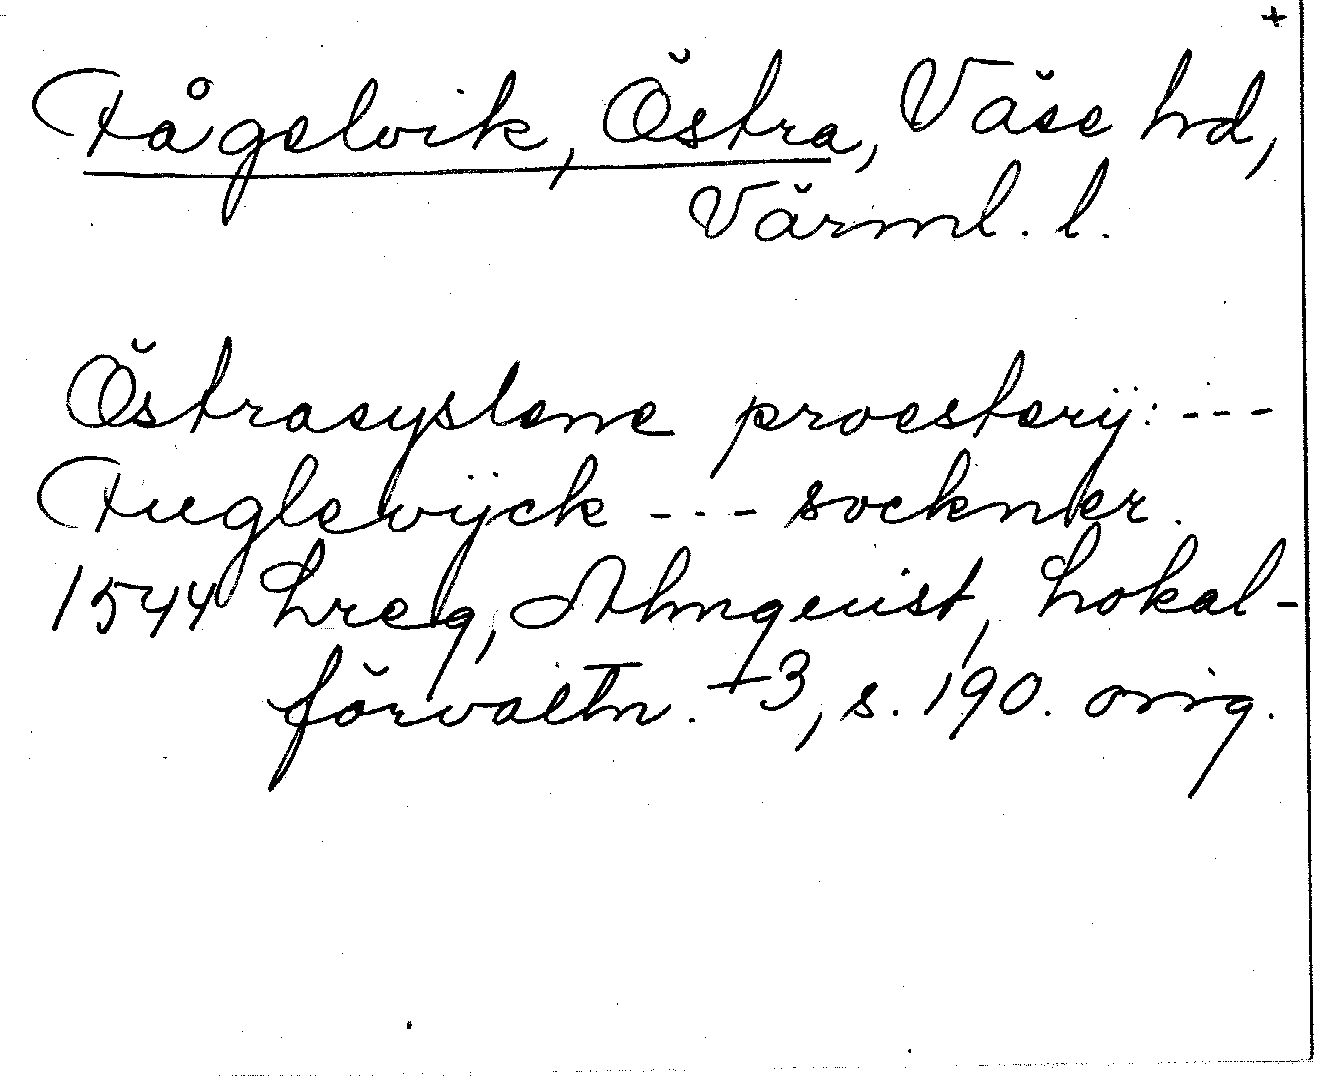 +
Fågelvik, Östra, Väse hd,
Värml. l.
Östrasyslene proesterij: ---
Fuglewijck --- sockner.
1544 Lreg, Almquist, Lokal-
förvaltn. 3, s. 190. orig.